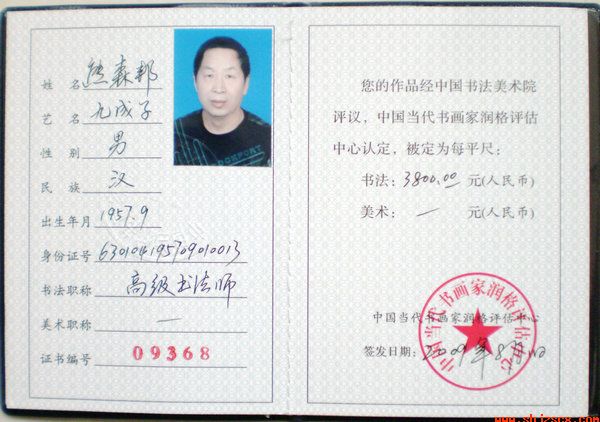 姓 名 熊森邦
艺 名 九成子
性 别 男
民 族 汉
出生年月 1957.9
身份证号 630104195709010013
书法职称 高级书法师
美术职称 一
证书编号 09368
您的作品经中国书法美术院
评议，中国当代书画家润格评估
中心认定，被定为每平尺：
书法：3800.00 元(人民币)
美术：一 元(人民币)
中国当代书画家润格评估中心
签发日期：2009年8月
中国当代书画家润格评估中心